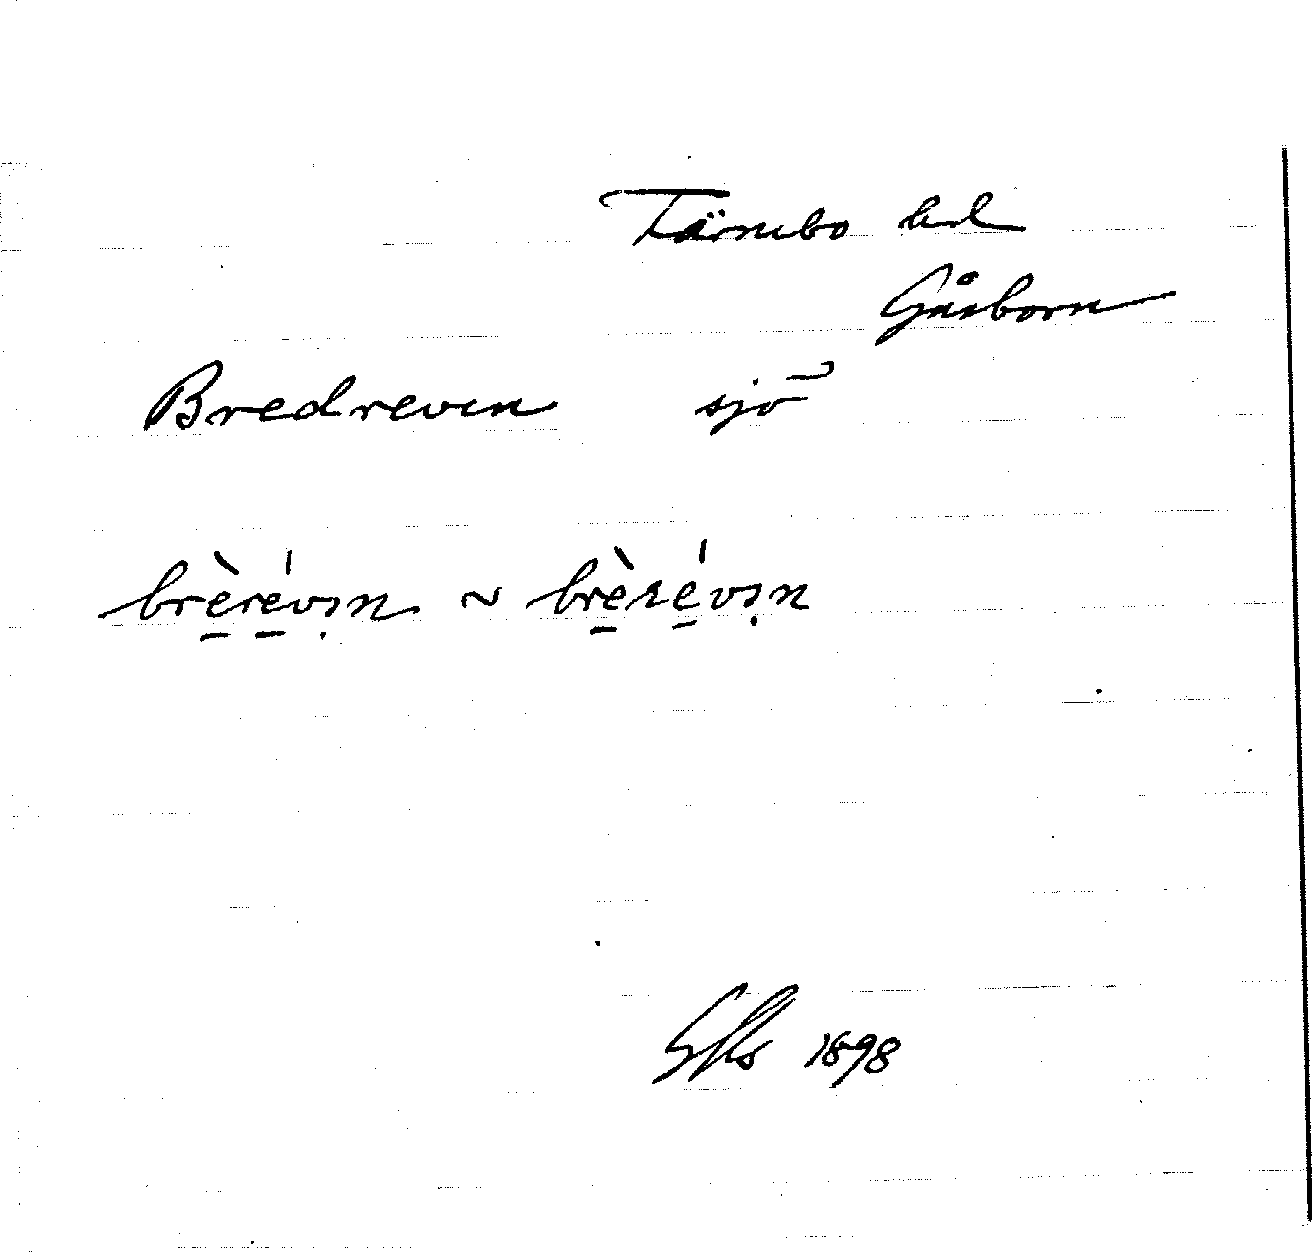 Färnebo hd
Gåsborn
Bredreven sjö
brèrévın ~ brèrévın
1898